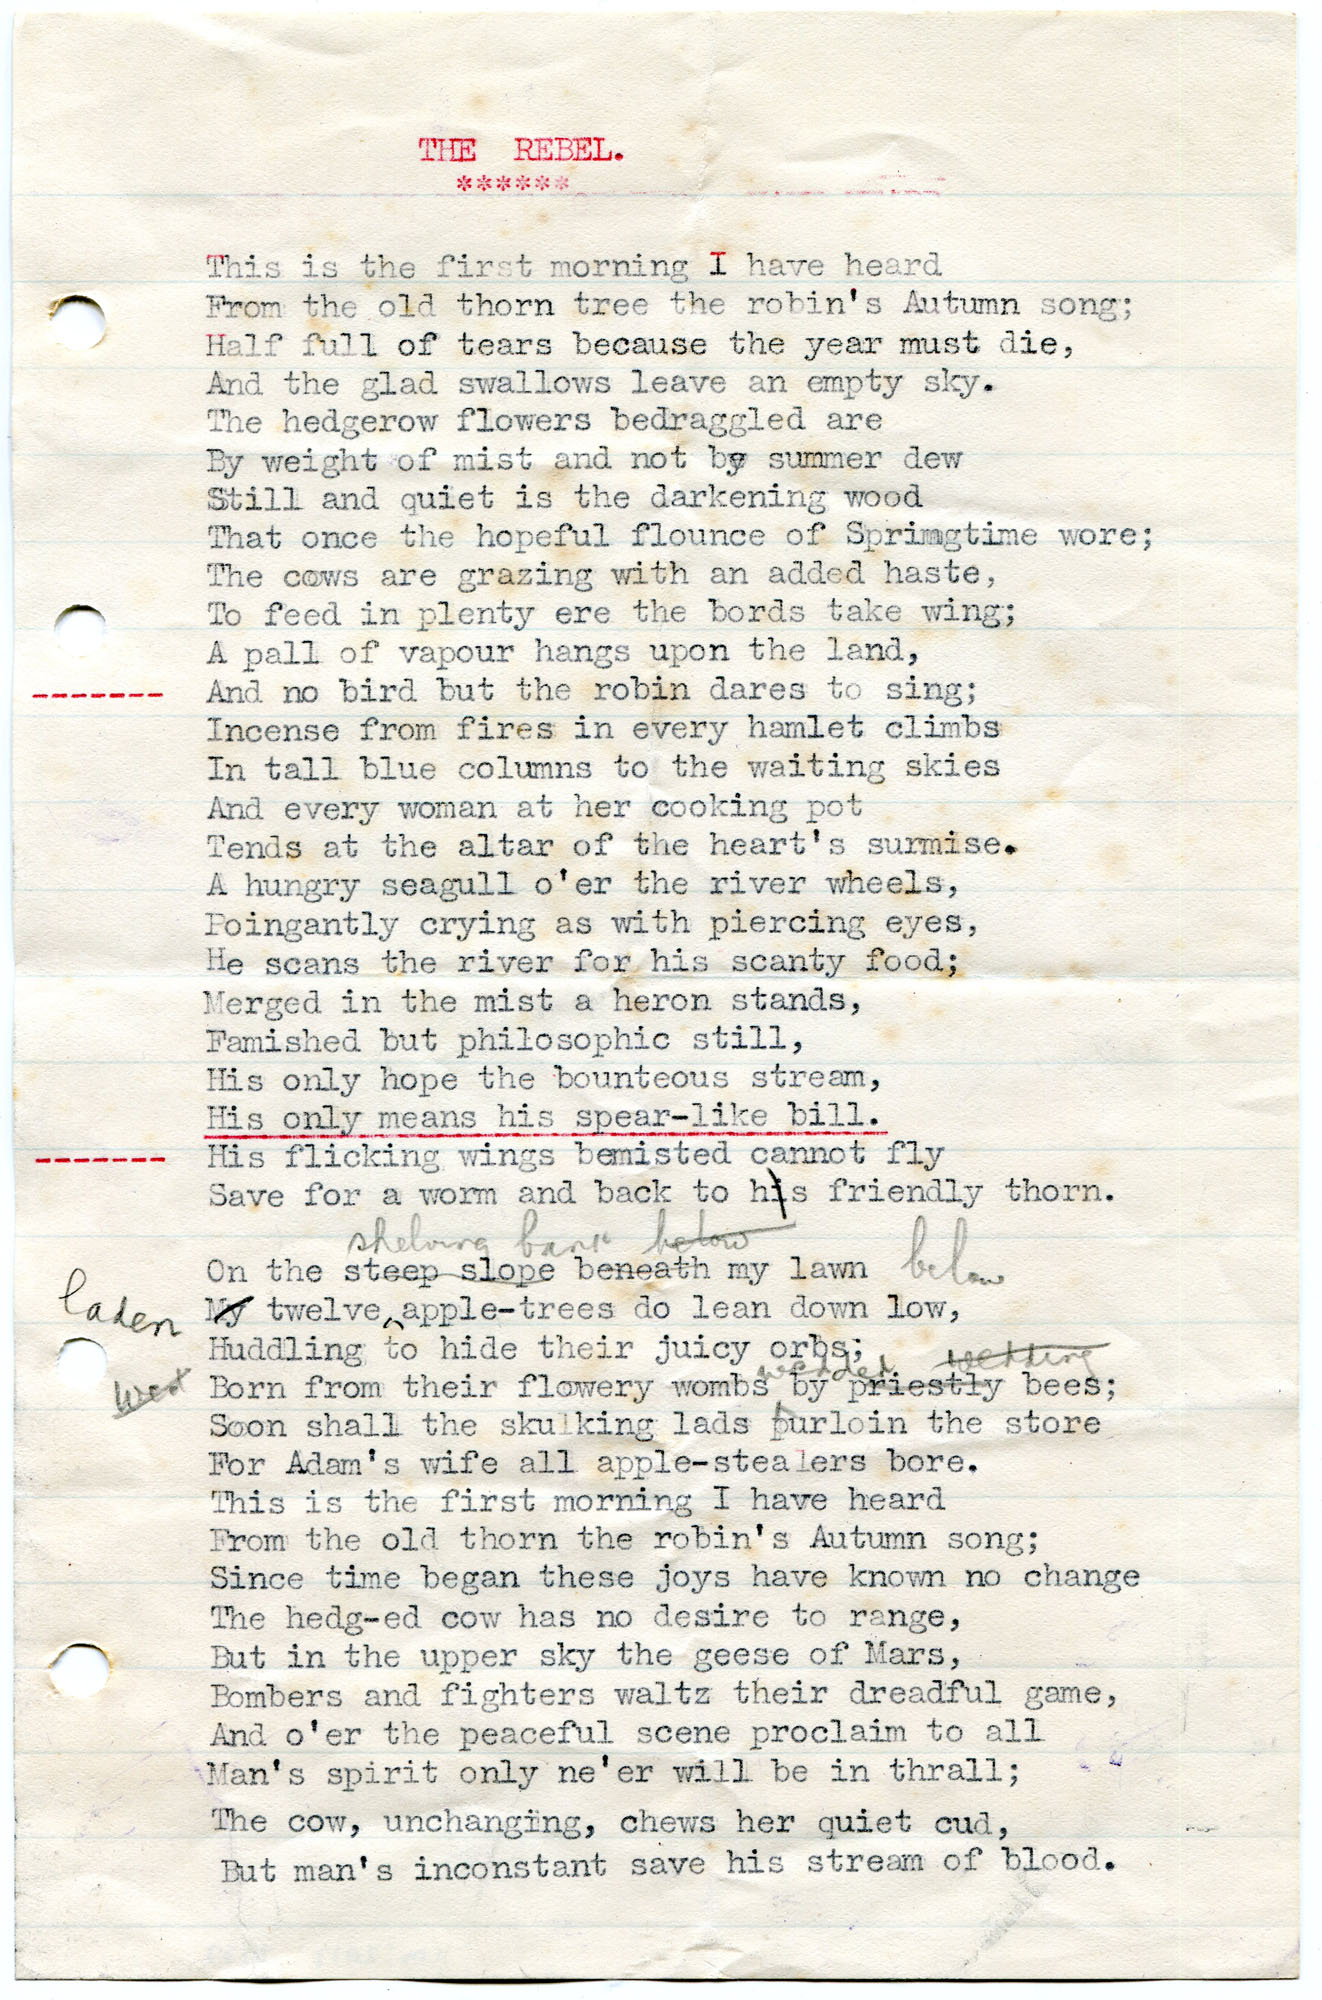 THE REBEL.
******
This is the first morning I have heard
From the old thorn tree the robin's Autumn song;
Half full of tears because the year must die,
And the glad swallows leave an empty sky.
The hedgerow flowers bedraggled are
By weight of mist and not by summer dew
Still and quiet is the darkening wood
That once the hopeful flounce of Sprimgtime wore;
The cows are grazing with an added haste,
To feed in plenty ere the bords take wing;
A pall of vapour hangs upon the land,
------- And no bird but the robin dares to sing;
Incense from fires in every hamlet climbs
In tall blue columns to the waiting skies
And every woman at her cooking pot
Tends at the altar of the heart's surmise.
A hungry seagull o'er the river wheels,
Poingantly crying as with piercing eyes,
He scans the river for his scanty food;
Merged in the mist a heron stands,
Famished but philosophic still,
His only hope the bounteous stream,
His only means his spear-like bill.
------- His flicking wings bemisted cannot fly
Save for a worm and back to his friendly thorn.
shelving bank below
On the steep slope beneath my lawn below
laden My twelve apple-trees do lean down low,
Huddling to hide their juicy orbs;
wedded wedding
wed Born from their flowery wombs by priestly bees;
Soon shall the skulking lads purloin the store
For Adam's wife all apple-stealers bore.
This is the first morning I have heard
From the old thorn the robin's Autumn song;
Since time began these joys have known no change
The hedg-ed cow has no desire to range,
But in the upper sky the geese of Mars,
Bombers and fighters waltz their dreadful game,
And o'er the peaceful scene proclaim to all
Man's spirit only ne'er will be in thrall;
The cow, unchanging, chews her quiet cud,
But man's inconstant save his stream of blood.